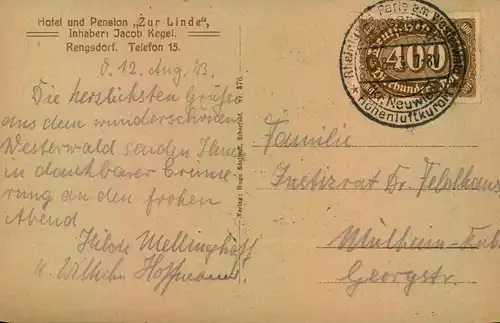 Hotel und Pension „Zur Linde",
Inhaber: Jacob Kegel.
Rengsdorf. Telefon 15.
d. 12. Aug. 23.
Die herzlichsten Grüße
aus dem wunderschönen
Westerwald senden Ihnen
in dankbarer Erinne-
rung an den frohen
Abend
Hilde Mellinghoff
u. Wilhelm Hoffmann.
Verlag: Hugo Elberfeld
Deutsches Reich
400
Vierhundert
Rheinische Perle am Westerwald
Neuwied
Höhenluftkurort
Familie
Justizrat Dr. Feldhaus
Mülheim-Ruhr
Georgstr.